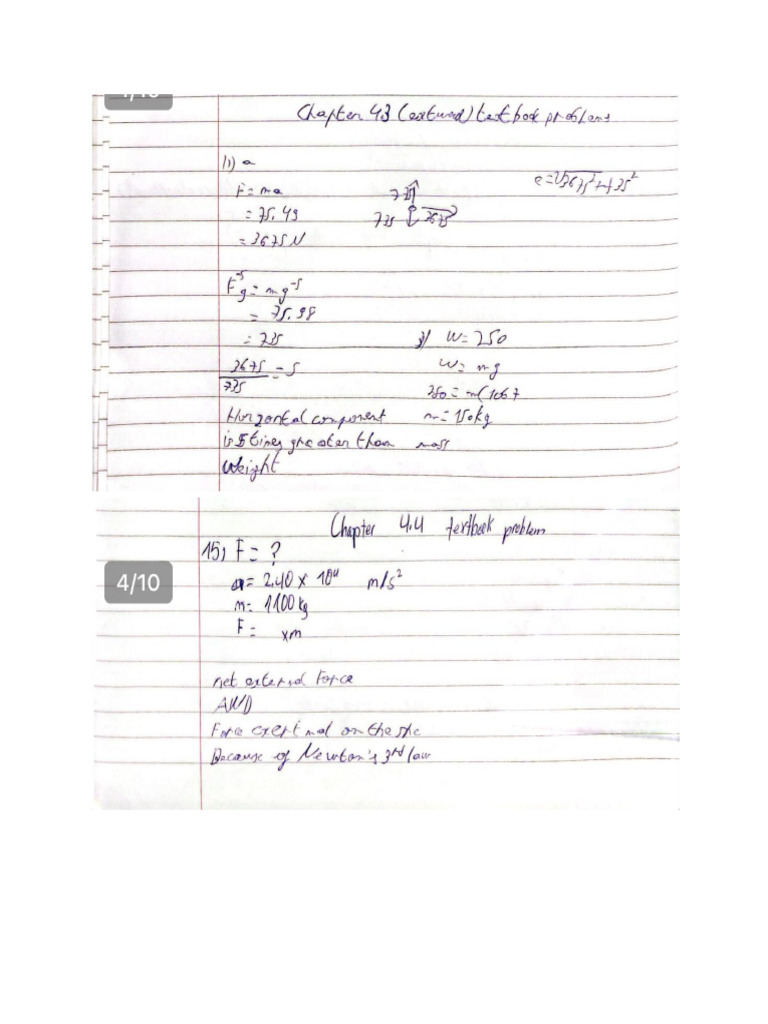 Chapter 43 (extured) textbook problems
11) a
F = ma
= 75.49
= 3675 N
735
735 3675
Fg = mg
= 75.98
= 735
3675 = 5
735
Horizontal component
is 5 times greater than
weight
W = 250
W = mg
250 = m(1.067
m = 150kg
mass
Chapter 4.4 textbook problem
15) F = ?
a = 2.40 × 10 m/s²
m = 1100 kg
F = xm
4/10
net external Force
AND
Force on the
Because of Newton's 3rd law